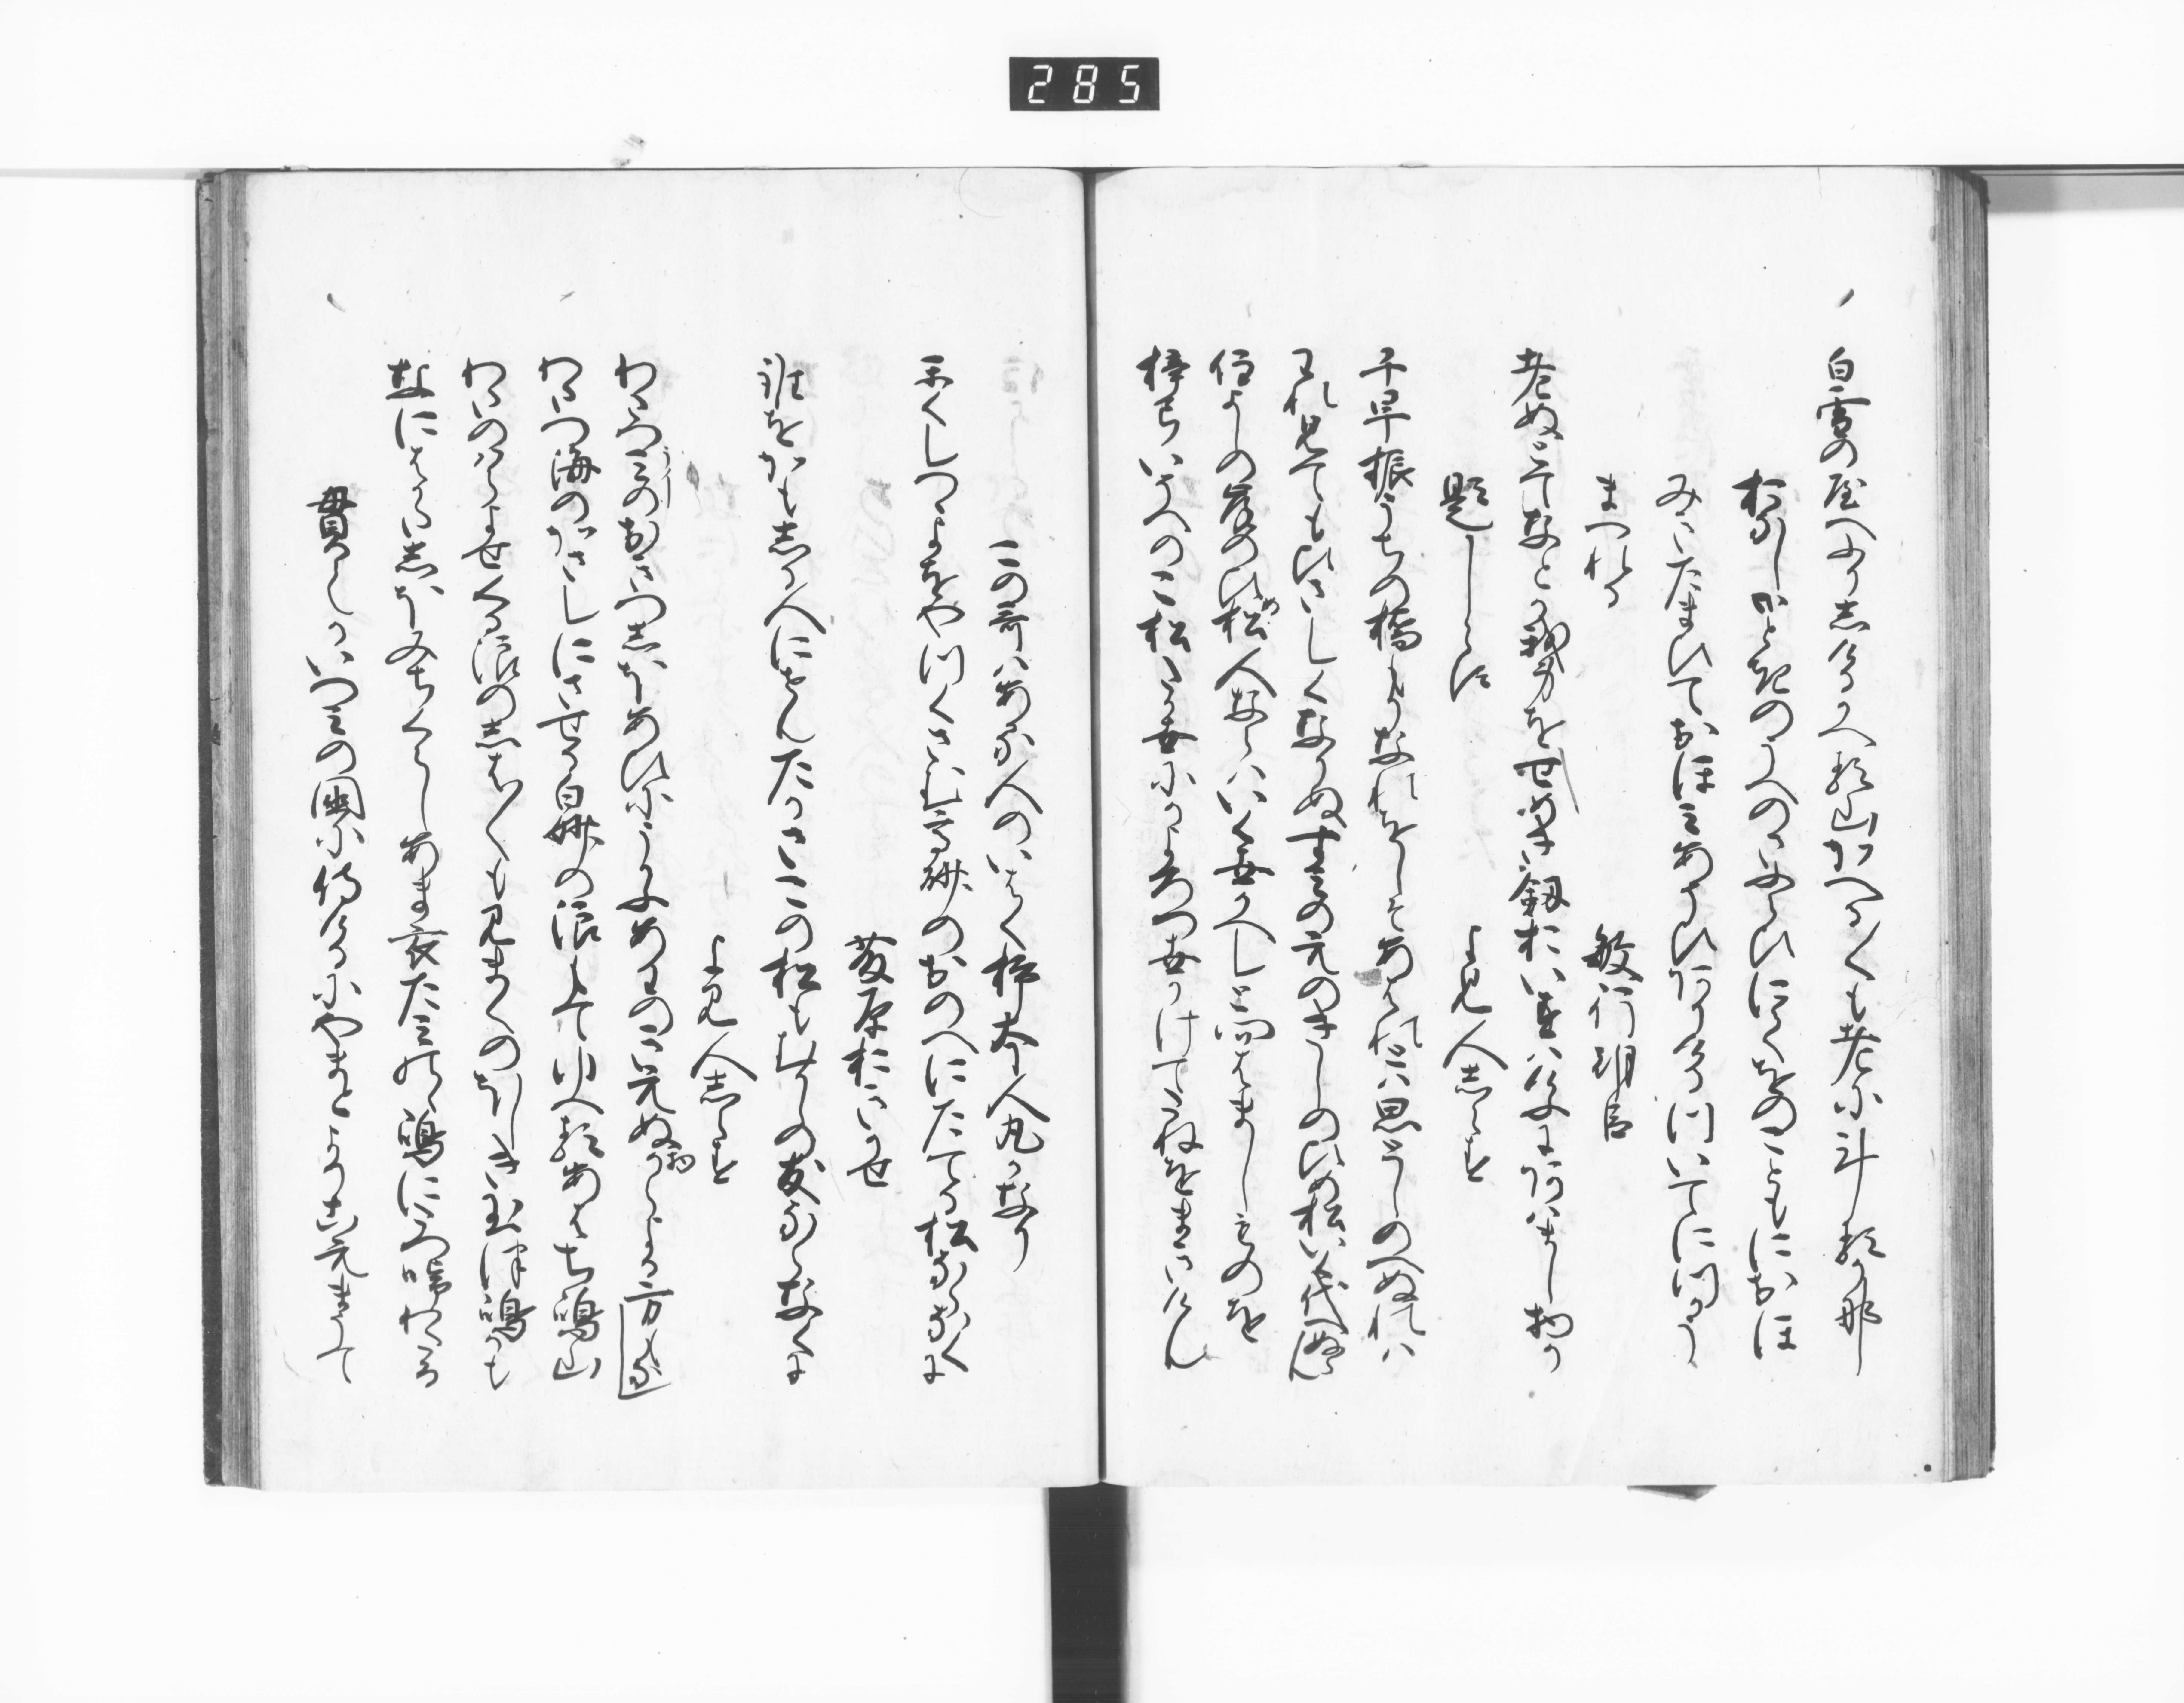 285
白雪の屋へふりしける入類山かへる〱も老にけ類か那
おなし御とき のうへのさふらひにてをのこともにおほ
みきたまひておほみあそひありけるついてにつかう
まつれる
敏行朝臣
老ぬとてなとか我身をせめき釼おいすはけふにあはまし物か
題しらす
よみ人しらす
千早振うちの橋もりなれをしそあはれとは思としのへぬれは
われ見てもひさしくなりぬ住吉のきしのひめ松いく代へぬらん
住よしの岸のひめ松人ならはいく世かへしと問はましものを
梓弓いそへのこ松たか世にかよろつ世かけてたねをまきけん
この哥はある人のいはく柿本人丸か也
かくしつつよをやつくさむ高砂のおのへにたてる松ならなくに
藤原おきかせ
誰をかもしる人にせんたかさこの松もむかしの友ならなくに
よみ人しらす
わたつ海のおきつしほあひにうかふあわのきえぬものからよる方もなし
わたつ海のかさしにさせる白妙の浪もてゆへ類あはち嶋山
わたのはらよせくる浪のしは〱も見まくのほしき玉津嶋かも
なにはかたしほみちくらしあま衣たみのゝ嶋にたつ鳴わたる
貫之かいつみの国に侍ける時にやまとよりこえまうて